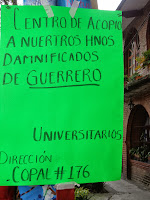 CENTRO DE ACOPIO
A NUERTROS HNOS
DAMNIFICADOS
DE GUERRERO
UNIVERSITARIOS
DIRECCIÓN
. COPAL # 176